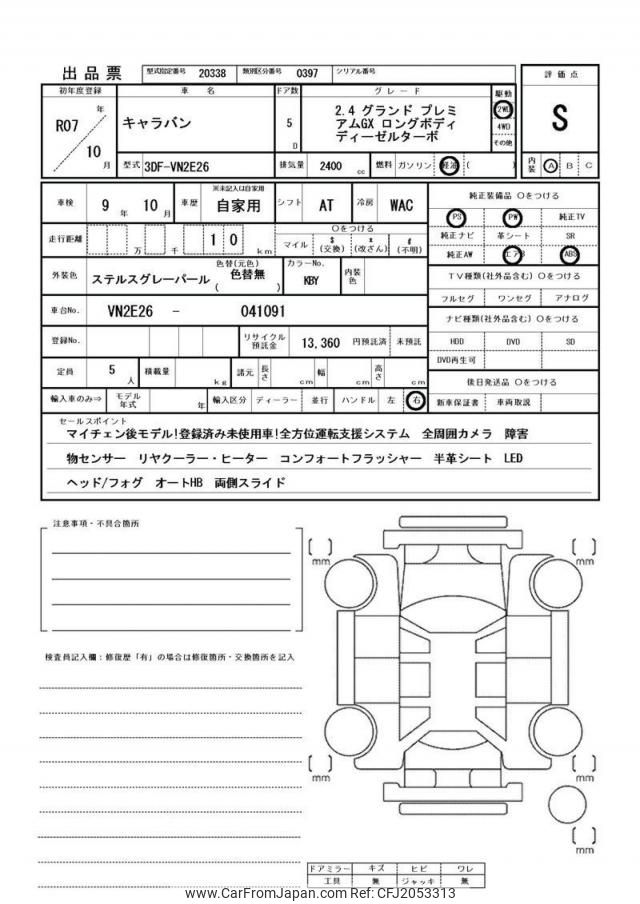 出品票 型式指定番号 20338 類別区分番号 0397 シリアル番号
評価点
S
初年度登録 車名 ドア数 グレード 駆動
R07 年 10 月
キャラバン
5 D
2.4 グランド プレミ
アムGX ロングボディ
ディーゼルターボ
2WD
4WD
その他
型式 3DF-VN2E26 排気量 2400 cc 燃料 ガソリン 軽油 ( )
内装 A B C
車検 9 年 10 月 車歴 ※未記入は自家用 自家用 シフト AT 冷房 WAC
純正装備品 〇をつける
PS PW 純正TV
純正ナビ 革シート SR
純正AW エアB ABS
走行距離 万 千 1 0 km 〇をつける
マイル $(交換) x(改ざん) #(不明)
外装色 ステルスグレーパール 色替(元色) ( 色替無 ) カラーNo. KBY 内装色
TV種類(社外品含む) 〇をつける
フルセグ ワンセグ アナログ
車台No. VN2E26 - 041091
ナビ種類(社外品含む) 〇をつける
HDD DVD SD
DVD再生可
登録No. リサイクル預託金 13,360 円預託済 未預託
定員 5 人 積載量 kg 諸元 長さ cm 幅 cm 高さ cm
後日発送品 〇をつける
新車保証書 車両取説
輸入車のみ⇒ モデル年式 年 輸入区分 ディーラー 並行 ハンドル 左 右
セールスポイント
マイチェン後モデル!登録済み未使用車!全方位運転支援システム 全周囲カメラ 障害
物センサー リヤクーラー・ヒーター コンフォートフラッシャー 半革シート LED
ヘッド/フォグ オートHB 両側スライド
注意事項・不具合箇所
検査員記入欄：修復歴「有」の場合は修復箇所・交換箇所を記入
[ ] mm
[ ] mm
[ ] mm
[ ] mm
[ ] mm
ドアミラー キズ ヒビ ワレ
工具 無 ジャッキ 無
www.CarFromJapan.com Ref No. CFJ2053313